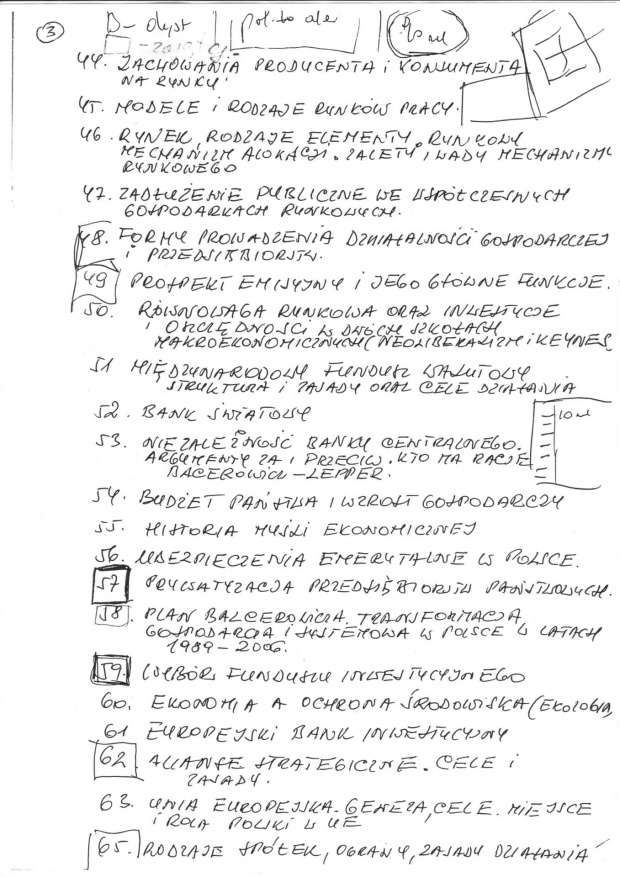 3
44. ZACHOWANIA PRODUCENTA I KONSUMENTA
NA RYNKU.
45. MODELE I RODZAJE RYNKÓW PRACY.
46. RYNEK, RODZAJE ELEMENTY. RYNKOWY
MECHANIZM ALOKACJI. ZALETY I WADY MECHANIZMU
RYNKOWEGO
47. ZADŁUŻENIE PUBLICZNE WE WSPÓŁCZESNYCH
GOSPODARKACH RYNKOWYCH.
48. FORMY PROWADZENIA DZIAŁALNOŚCI GOSPODARCZEJ
I PRZEDSIĘBIORSTW.
49 PROSPEKT EMISYJNY I JEGO GŁÓWNE FUNKCJE.
50. RÓWNOWAGA RYNKOWA ORAZ INWESTYCJE
I OSZCZĘDNOŚCI W DWÓCH SZKOŁACH
MAKROEKONOMICZNYCH (NEOLIBERALIZM I KEYNES
51 MIĘDZYNARODOWY FUNDUSZ WALUTOWY
STRUKTURA I ZASADY ORAZ CELE DZIAŁANIA
52. BANK ŚWIATOWY
10
53. NIEZALEŻNOŚĆ BANKU CENTRALNEGO.
ARGUMENTY ZA I PRZECIW. KTO MA RACJE
BACEROWICZ - LEPPER.
54. BUDŻET PAŃSTWA I WZROST GOSPODARCZY
55. HISTORIA MYŚLI EKONOMICZNEJ
56. UBEZPIECZENIA EMERYTALNE W POLSCE.
57 PRYWATYZACJA PRZEDSIĘBIORSTW PAŃSTWOWYCH.
58. PLAN BALCEROWICZA. TRANSFORMACJA
GOSPODARCZA I SYSTEMOWA W POLSCE W LATACH
1989 - 2006.
59. WYBÓR FUNDUSZU INWESTYCYJNEGO
60. EKONOMIA A OCHRONA ŚRODOWISKA (EKOLOGIA,
61 EUROPEJSKI BANK INWESTYCYJNY
62. ALIANSE STRATEGICZNE. CELE I
ZASADY.
63. UNIA EUROPEJSKA. GENEZA, CELE. MIEJSCE
I ROLA POLSKI W UE
65. RODZAJE SPÓŁEK, OGRANY, ZASADY DZIAŁANIA